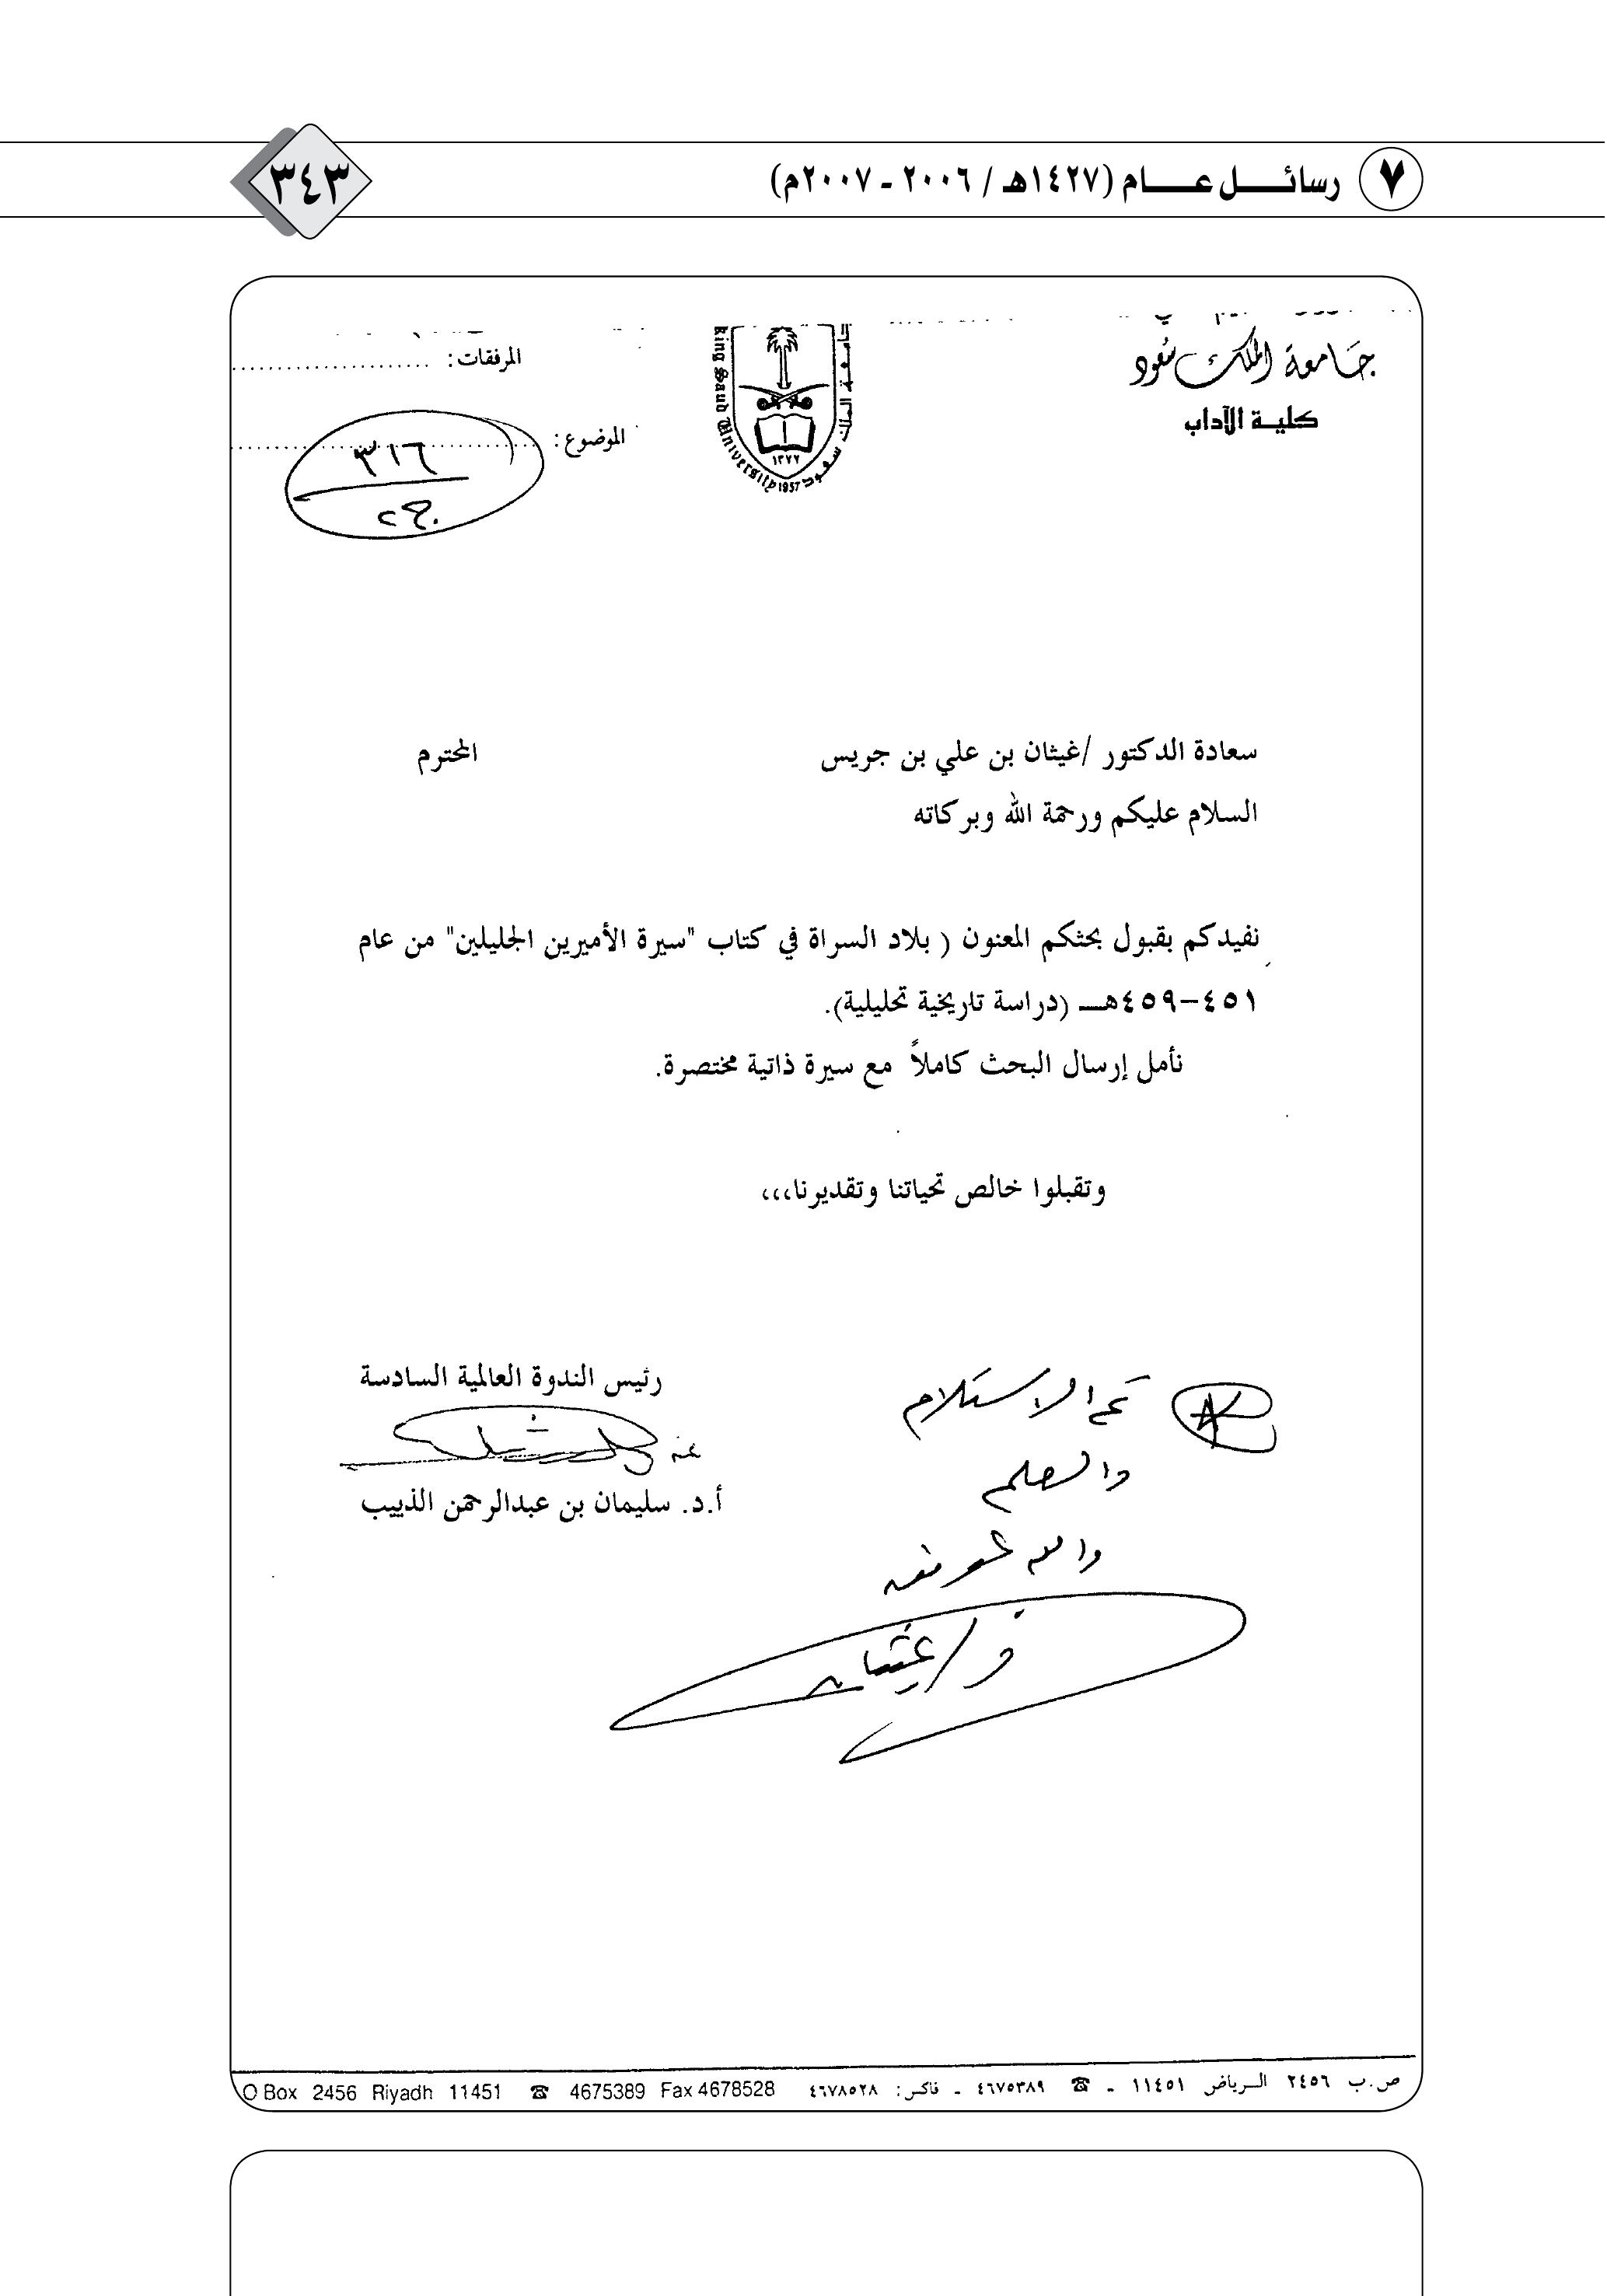 ٧ رسائل عام (١٤٢٧هـ / ٢٠٠٦ ـ ٢٠٠٧م)
٣٤٣
جامعة الملك سعود
كلية الآداب
جامعة الملك سعود
١٣٧٧
King Saud University 1957
المرفقات:
الموضوع:
٣١٦
ج٢
سعادة الدكتور /غيثان بن علي بن جريس المحترم
السلام عليكم ورحمة الله وبركاته
نفيدكم بقبول بحثكم المعنون ( بلاد السراة في كتاب "سيرة الأميرين الجليلين" من عام
٤٥١–٤٥٩هـ (دراسة تاريخية تحليلية).
نأمل إرسال البحث كاملاً مع سيرة ذاتية مختصرة.
وتقبلوا خالص تحياتنا وتقديرنا،،،
رئيس الندوة العالمية السادسة
عنه
أ.د. سليمان بن عبدالرحمن الذييب
تم الاستلام
والعلم
والله الموفق
د/غيثان
ص.ب ٢٤٥٦ الرياض ١١٤٥١ ـ ☎ ٤٦٧٥٣٨٩ ـ فاكس: ٤٦٧٨٥٢٨
O Box 2456 Riyadh 11451 ☎ 4675389 Fax 4678528